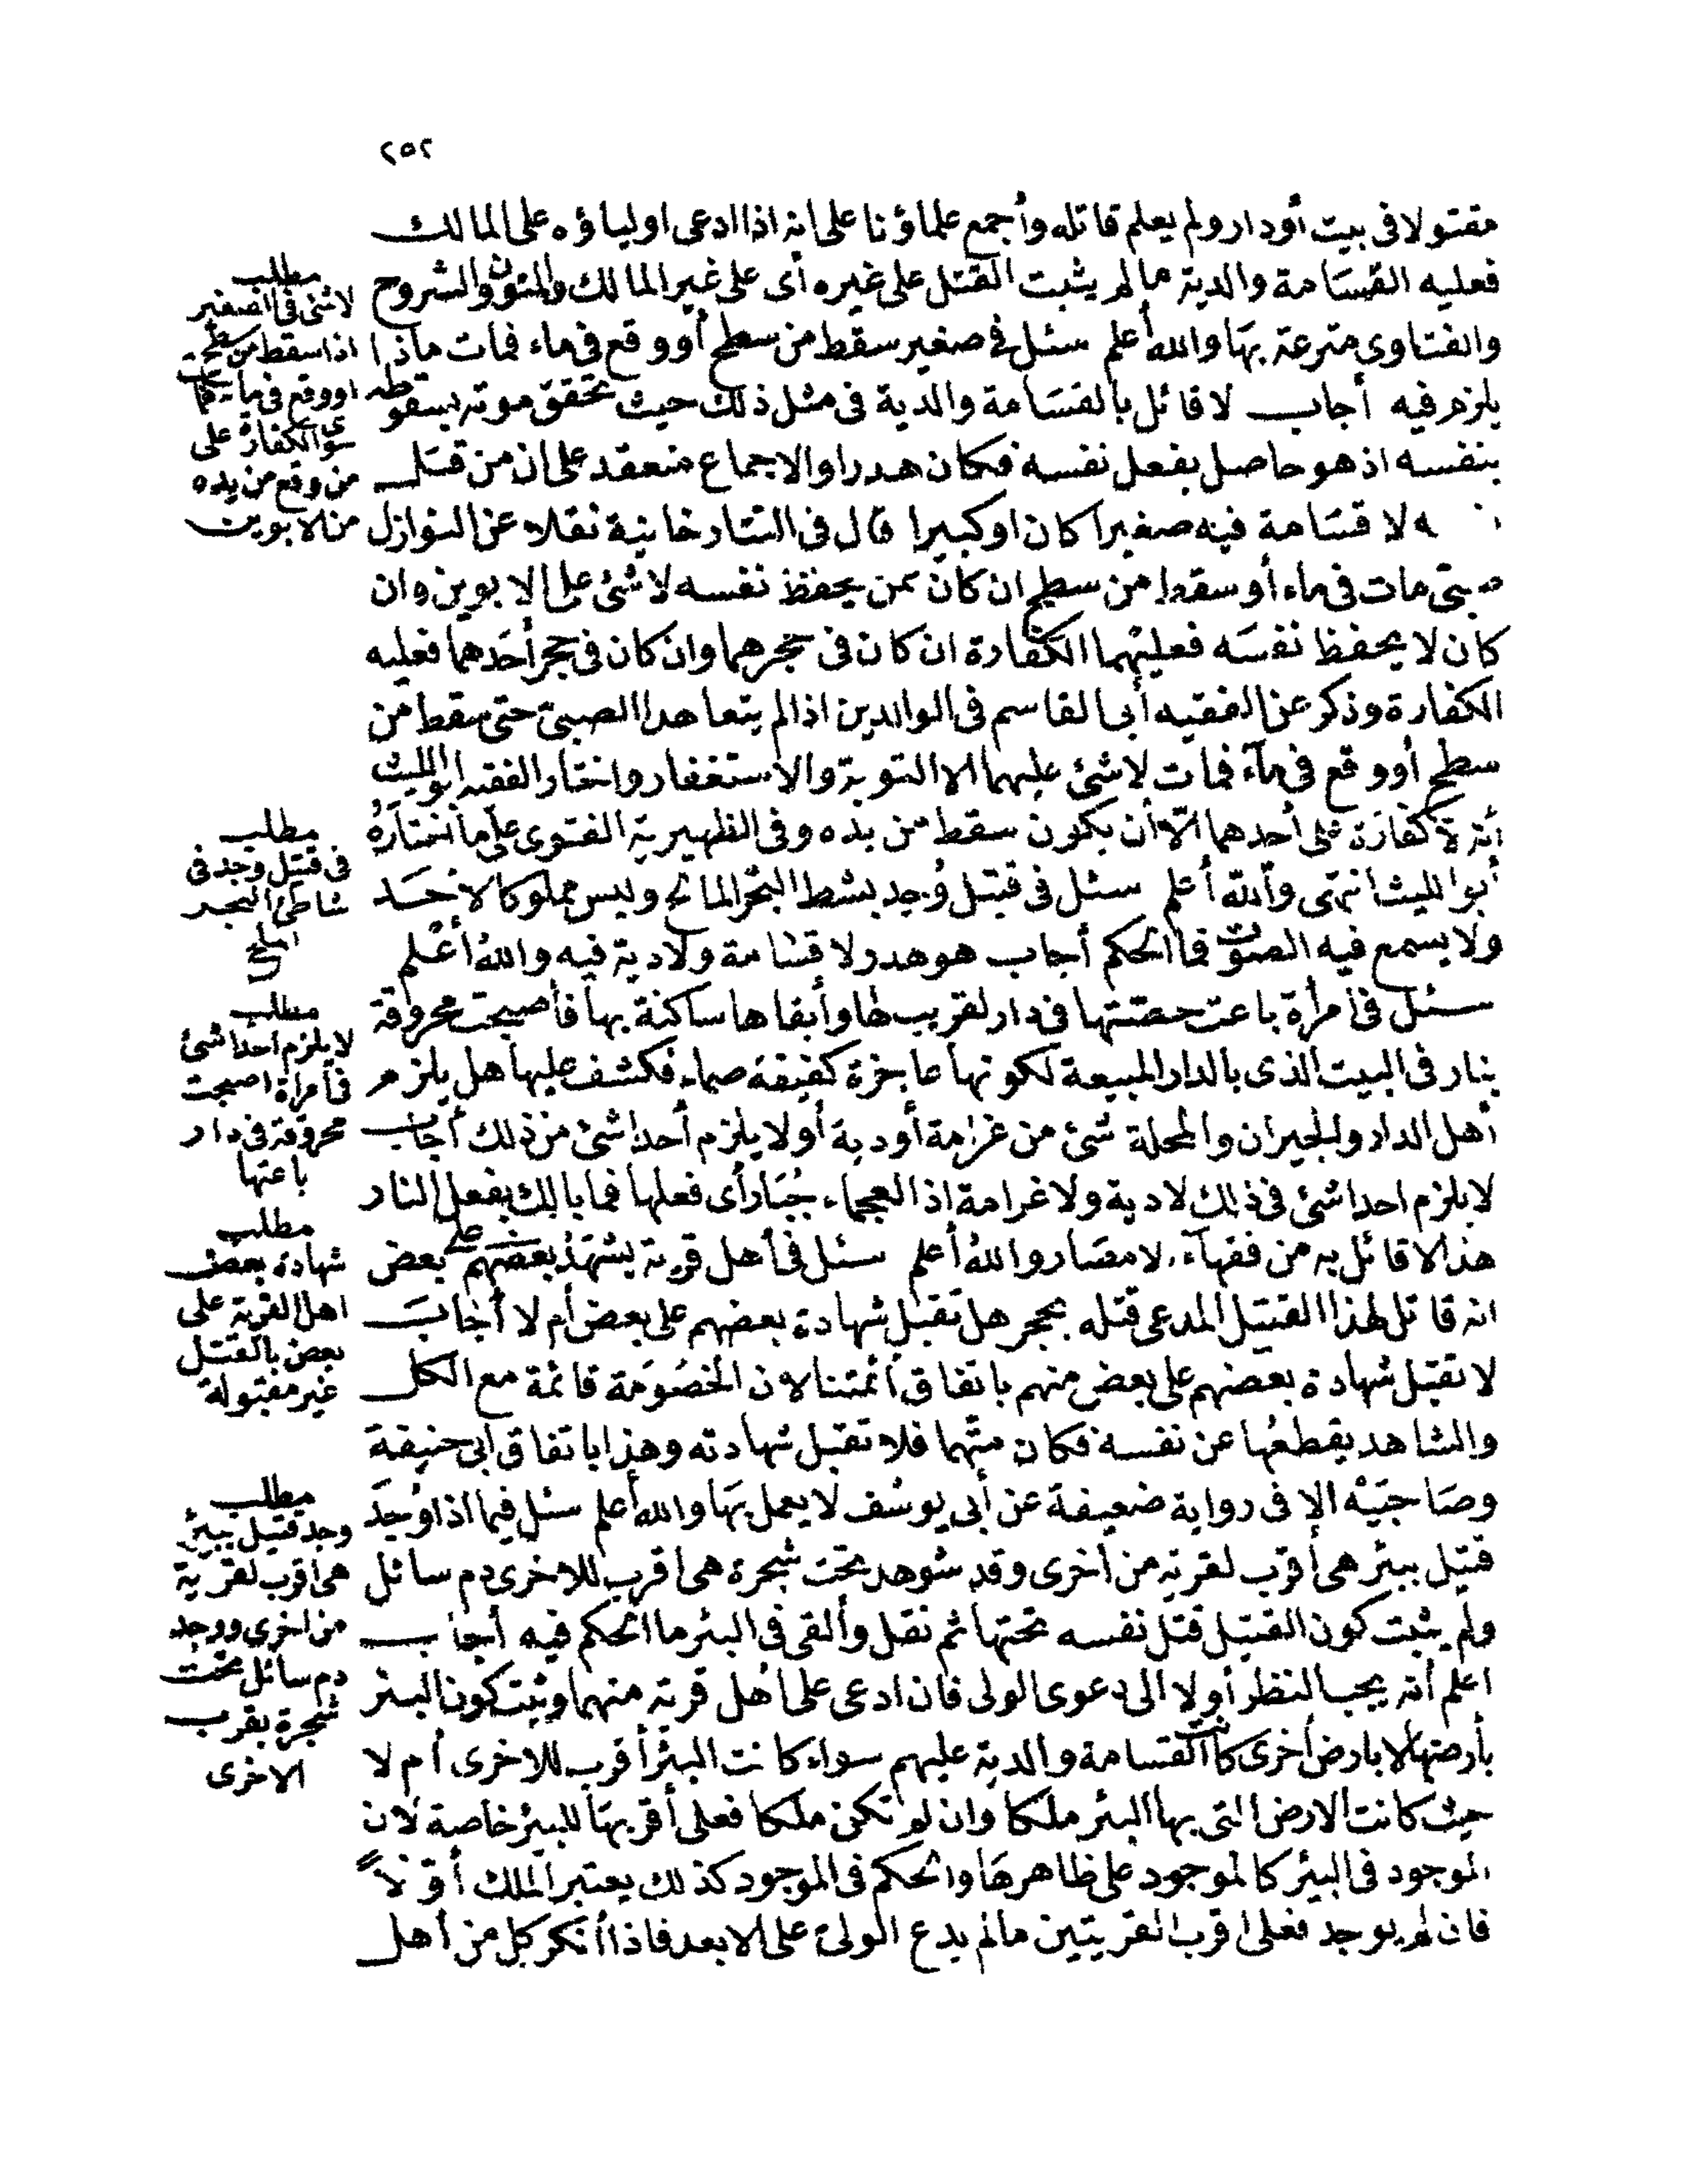 ٢٥٢
مقتولا فى بيت أودار ولم يعلم قاتله وأجمع علماؤنا على انه اذا ادعى اولياؤه على المالك
فعليه القسَامة والدية مالم يثبت القتل على غيره أى على غير المالك والمتون والشروح
والفتاوى مترعة بهَا والله أعلم سئل فى صغير سقط من سطح أو وقع فى ماء فمات ماذا
يلزم فيه أجاب لا قائل بالقسَامة والدية فى مثل ذلك حيث تحقق موته بسقوطه
بنفسه اذ هو حاصل بفعل نفسه فكان هدرا والاجماع منعقد على ان من قتل
ه لا قسَامة فيه صغيرا كان او كبيرا قال فى التتارخانية نقلا عن النوازل
صبىّ مات فى ماء أو سقط من سطح ان كان ممن يحفظ نفسه لا شئ على الابوين وان
كان لا يحفظ نفسَه فعليهما الكفارة ان كان فى حجرهما وان كان فى حجر أحَدهما فعليه
الكفارة وذكر عن الفقيه أبى القاسم فى الوالدين اذا لم يتعاهدا الصبىّ حتى سقط من
سطح أو وقع فى مآء فمات لا شئ عليهما الا التوبة والاستغفار واختار الفقيه ابو الليث
أنه لا كفارة على أحدهما الّا أن يكون سقط من يده وفى الظهيرية الفتوى على ما اختارهُ
أبو الليث انتهى وآلله أعلم سئل فى قتيل وُجد بشط البحْر المالح وليس مملوكا لأحَد
ولا يسمع فيه الصوت فما الحكم أجاب هو هدر لا قسَامة ولا دية فيه والله أعْلم
سئل فى امرأة باعت حصّتها فى دار لقريب لها وأبقاها ساكنة بها فأصبحت محروقة
بنار فى البيت الذى بالدار المبيعة لكونها عاجزة كفيفة صماء فكشف عليها هل يلزم
أهل الدار والجيران والمحلة شئ من غرامة أو دية أو لا يلزم أحدا شئ من ذلك أجاب
لا يلزم احدا شئ فى ذلك لا دية ولا غرامة اذ العجماء جُبَار أى فعلها فما بالك بفعل النار
هذا لا قائل به من فقهآء الامصَار والله أعلم سئل فى أهل قرية يشهَدُ بعضهم على بعض
انه قاتل لهذا القتيل المدعى قتله بحجر هل تقبل شهادة بعضهم على بعض أم لا أجَابَ
لا تقبل شهادة بعضهم على بعض منهم باتفاق أئمتنا لان الخصُومَة قائمة مع الكل
والشاهد يقطعُها عن نفسه فكان متّهما فلا تقبل شهادته وهذا باتفاق ابى حنيفة
وصَاحبَيْه الا فى رواية ضعيفة عن أبى يوسُف لا يعمل بهَا والله أعلم سئل فيما اذا وُجدَ
قتيل ببئر هى أقرب لقرية من أخرى وقد شوهد تحت شجرة هى اقرب للاخرى دم سائل
ولم يثبت كون القتيل قتل نفسه تحتها ثم نقل وألقى فى البئر ما الحكم فيه أجاب
اعلم أنه يجب النظر أولا الى دعوى الولى فان ادعى على أهل قرية منهما وثبت كون البئر
بأرضها لا بارض أخرى كانت القسامة والدية عليهم سواء كانت البئر أقرب للاخرى أم لا
حيث كانت الارض التى بها البئر ملكا وان لم تكن ملكا فعلى أقربهَا للبئر خاصة لان
الموجود فى البئر كالموجود على ظاهرهَا والحكم فى الموجود كذلك يعتبر الملك أوّلاً
فان لم يوجد فعلى اقرب القريتين مالم يدع الولىّ على الابعد فاذا أنكر كل من أهل
مطلب
لا شئ فى الصغير
اذا سقط من سطح
او وقع فى ماء فمات
سوى الكفارة على
من وقع من يده
من الابوين
مطلب
فى قتيل وجد فى
شاطئ البحر
المالح
مطلب
لا يلزم احدا شئ
فى امرأة اصبحت
محروقة فى دار
باعتها
مطلب
شهادة بعض
اهل القرية على
بعض بالقتل
غير مقبولة
مطلب
وجد قتيل ببئر
هى اقرب لقرية
من اخرى ووجد
دم سائل تحت
شجرة بقرب
الاخرى